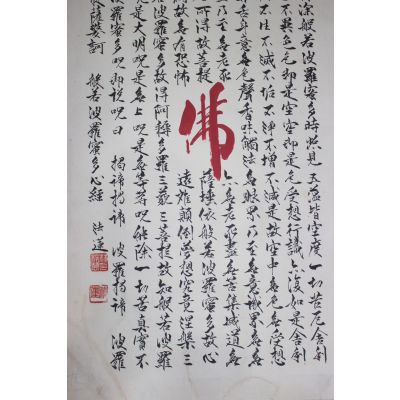 深般若波羅蜜多時照見五蘊皆空度一切苦厄舍利
不異色色即是空空即是色受想行識亦復如是舍利
不生不滅不垢不淨不增不減是故空中無色無受想
舌身意無色聲香味觸法無眼界乃至無意識界無無
乃至無老死 亦無老死盡無苦集滅道無
所得故菩提 薩埵依般若波羅蜜多故心
礙故無有恐怖 遠離顛倒夢想究竟涅槃三
波羅蜜多故得阿耨多羅三藐三菩提故知般若波羅
是大明呪是無上呪是無等等呪能除一切苦真實不
羅蜜多呪即說呪曰 揭諦揭諦 波羅揭諦 波羅
提薩婆訶 般若波羅蜜多心經
佛